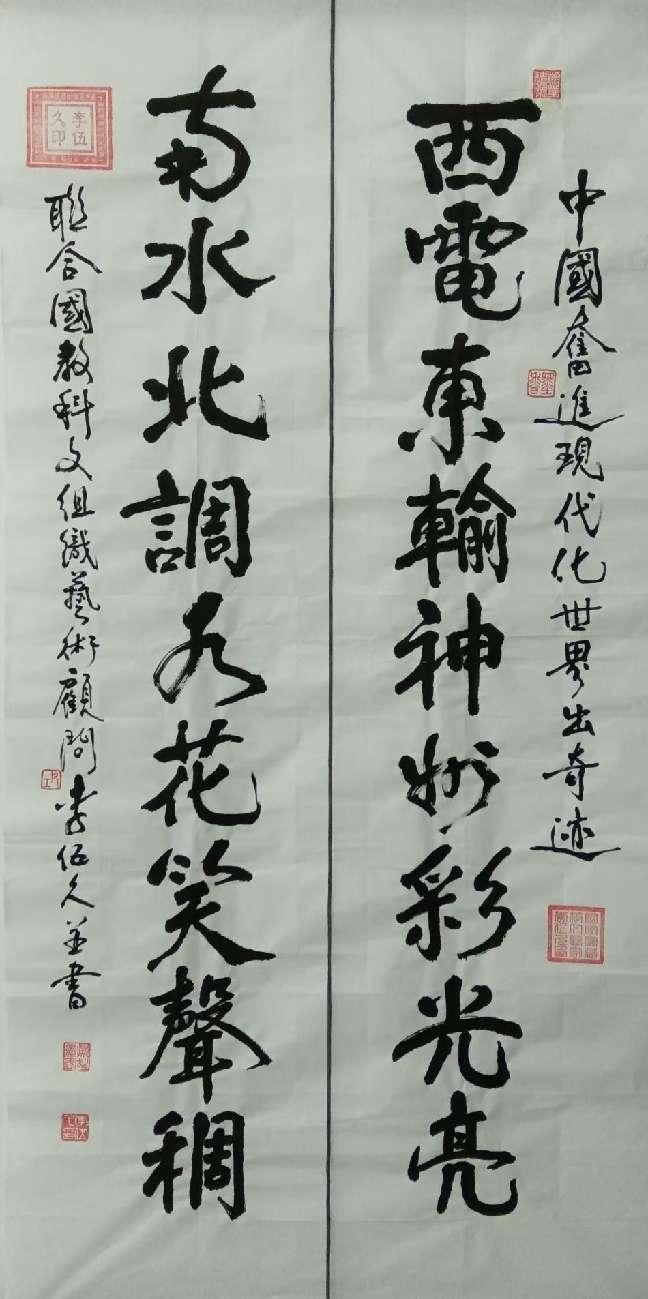 中國奮進現代化世界出奇迹
西電東輸神州彩光亮
南水北調花笑聲稠
聯合國教科文組織藝術顧問李伍久並書
李伍久印